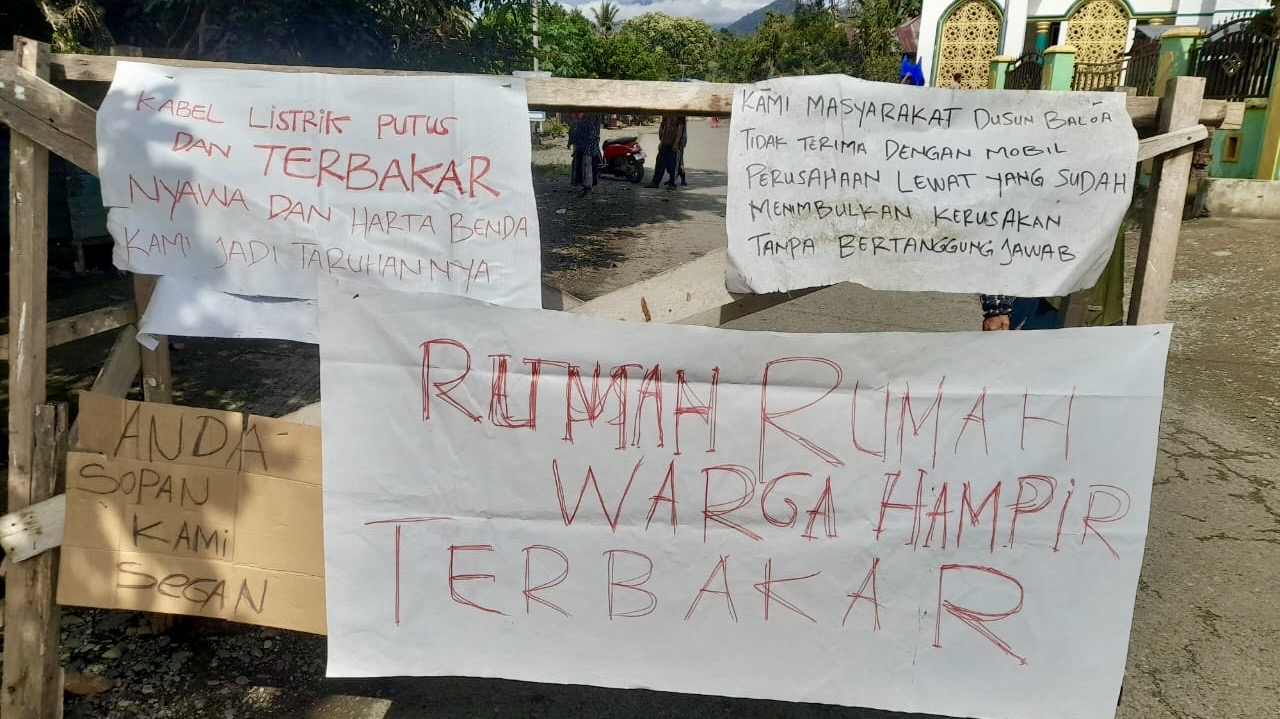 KABEL LISTRIK PUTUS
DAN TERBAKAR
NYAWA DAN HARTA BENDA
KAMI JADI TARUHANNYA
KAMI MASYARAKAT DUSUN BALOA
TIDAK TERIMA DENGAN MOBIL
PERUSAHAAN LEWAT YANG SUDAH
MENIMBULKAN KERUSAKAN
TANPA BERTANGGUNG JAWAB
ANDA
SOPAN
KAMI
SEGAN
RUMAH RUMAH
WARGA HAMPIR
TERBAKAR